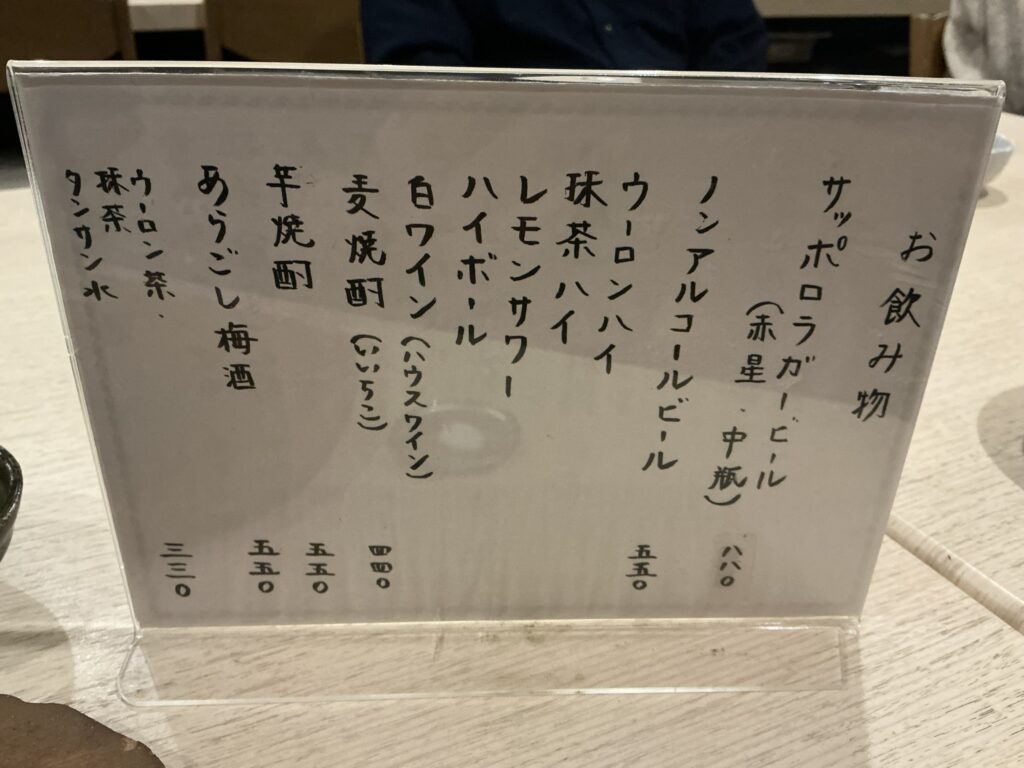 お飲み物
サッポロラガービール
(赤星.中瓶)
八八〇
ノンアルコールビール
五五〇
ウーロンハイ
抹茶ハイ
レモンサワー
ハイボール
白ワイン(ハウスワイン)
麦焼酎(いいちこ)
四四〇
芋焼酎
五五〇
あらごし梅酒
五五〇
ウーロン茶.
三三〇
抹茶
タンサン水